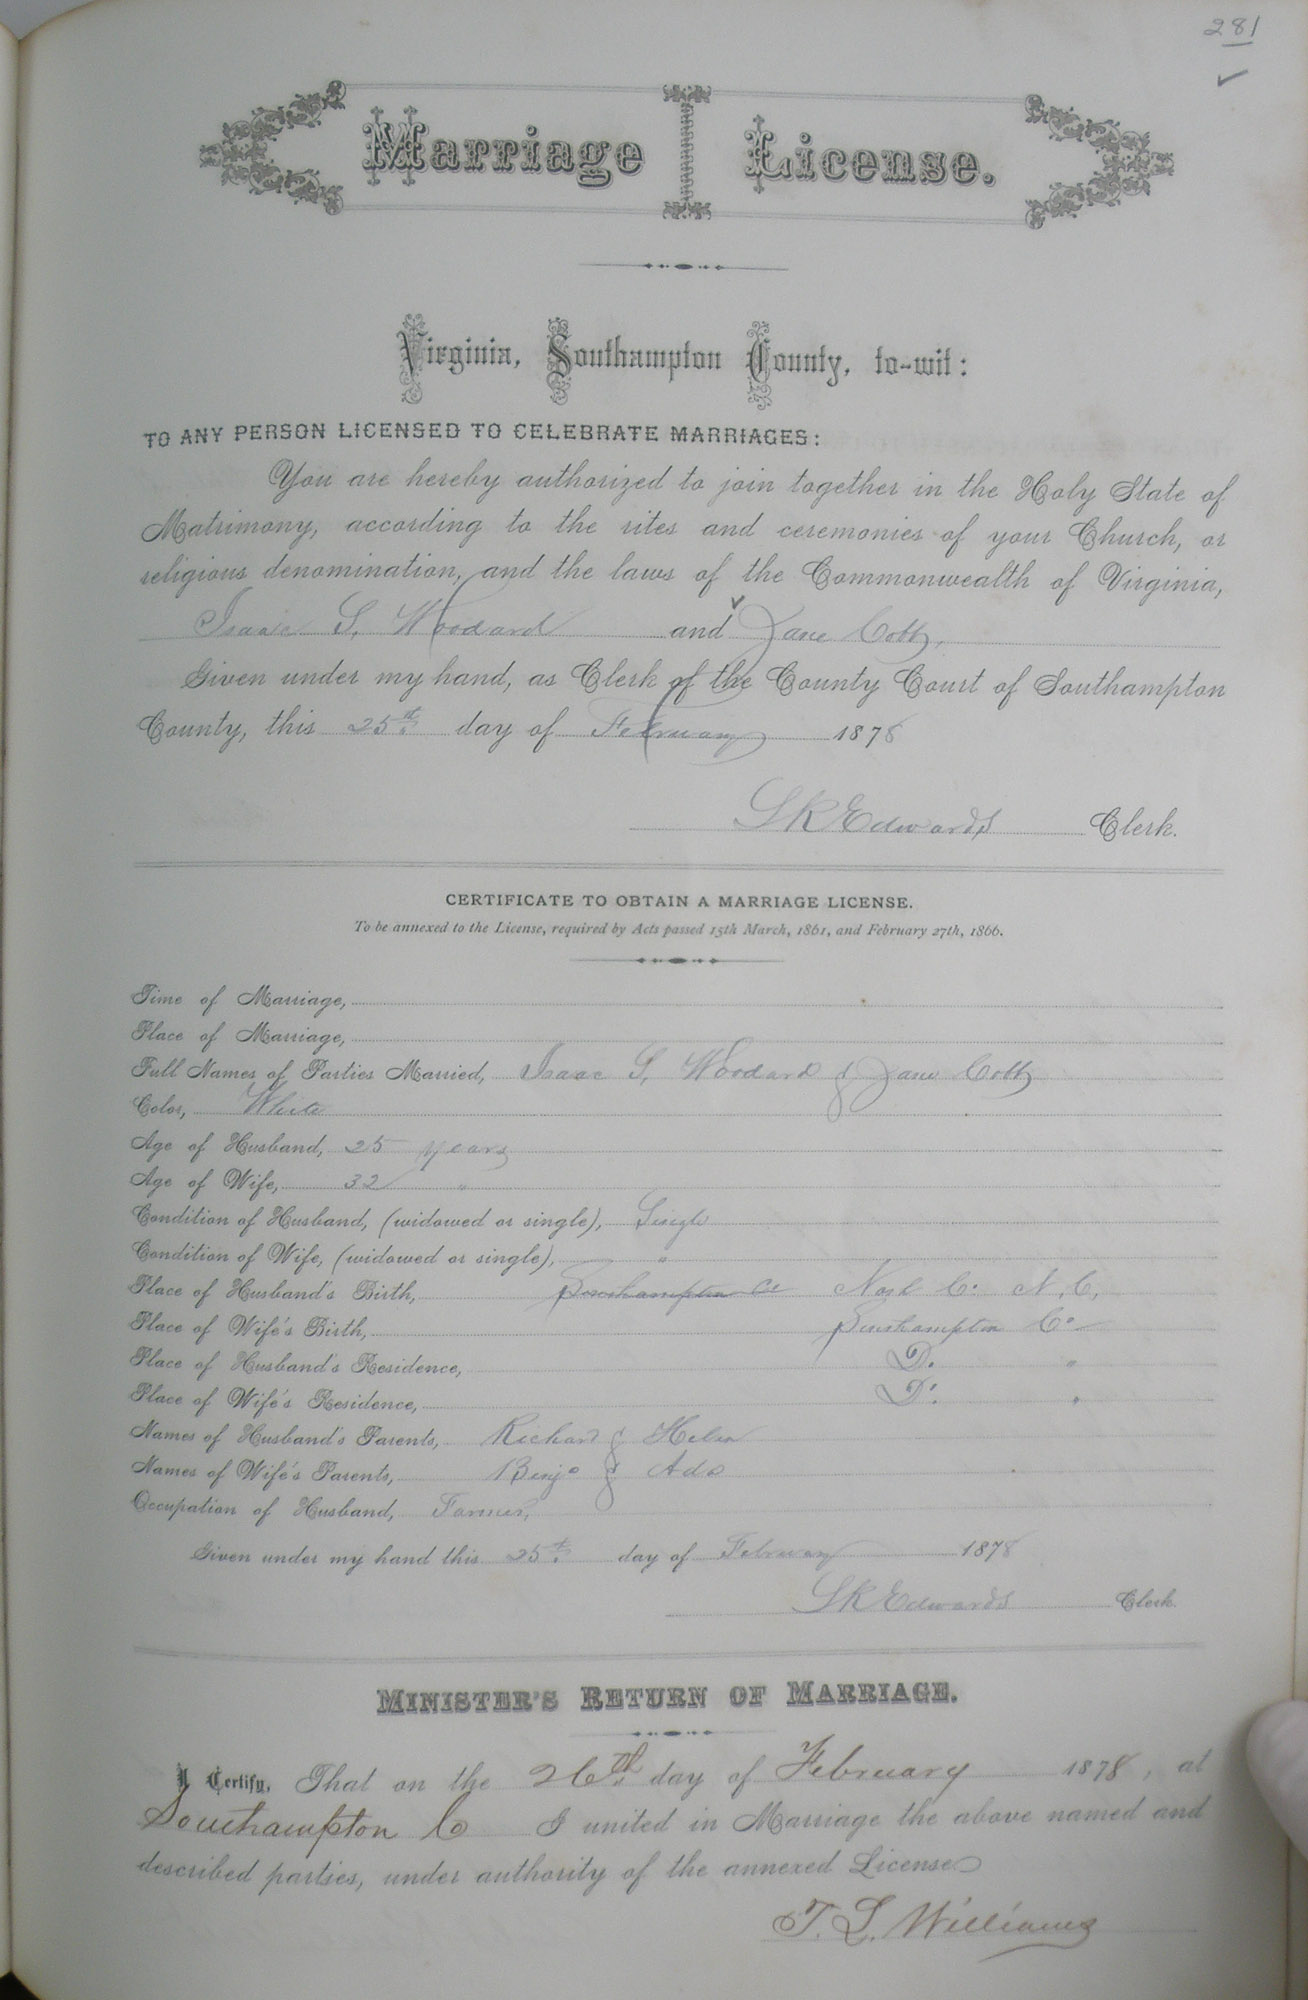 281
✓
Marriage License.
Virginia, Southampton County, to-wit:
TO ANY PERSON LICENSED TO CELEBRATE MARRIAGES:
You are hereby authorized to join together in the Holy State of
Matrimony, according to the rites and ceremonies of your Church, or
religious denomination, and the laws of the Commonwealth of Virginia,
Isaac S. Woodard and Jane Cobb,
Given under my hand, as Clerk of the County Court of Southampton
County, this 25th day of February 1878
L R Edwards Clerk.
CERTIFICATE TO OBTAIN A MARRIAGE LICENSE.
To be annexed to the License, required by Acts passed 15th March, 1861, and February 27th, 1866.
Time of Marriage,
Place of Marriage,
Full Names of Parties Married, Isaac S. Woodard & Jane Cobb
Color, White
Age of Husband, 25 years
Age of Wife, 32 "
Condition of Husband, (widowed or single), Single
Condition of Wife, (widowed or single), "
Place of Husband's Birth, Southampton Co Nash Co. N.C.
Place of Wife's Birth, Southampton Co
Place of Husband's Residence, Do. "
Place of Wife's Residence, Do. "
Names of Husband's Parents, Richard & Helen
Names of Wife's Parents, Benjn & Ada
Occupation of Husband, Farmer,
Given under my hand this 25th day of February 1878
L R Edwards Clerk.
MINISTER'S RETURN OF MARRIAGE.
I Certify, That on the 26th day of February 1878, at
Southampton Co I united in Marriage the above named and
described parties, under authority of the annexed License
T. L. Williams